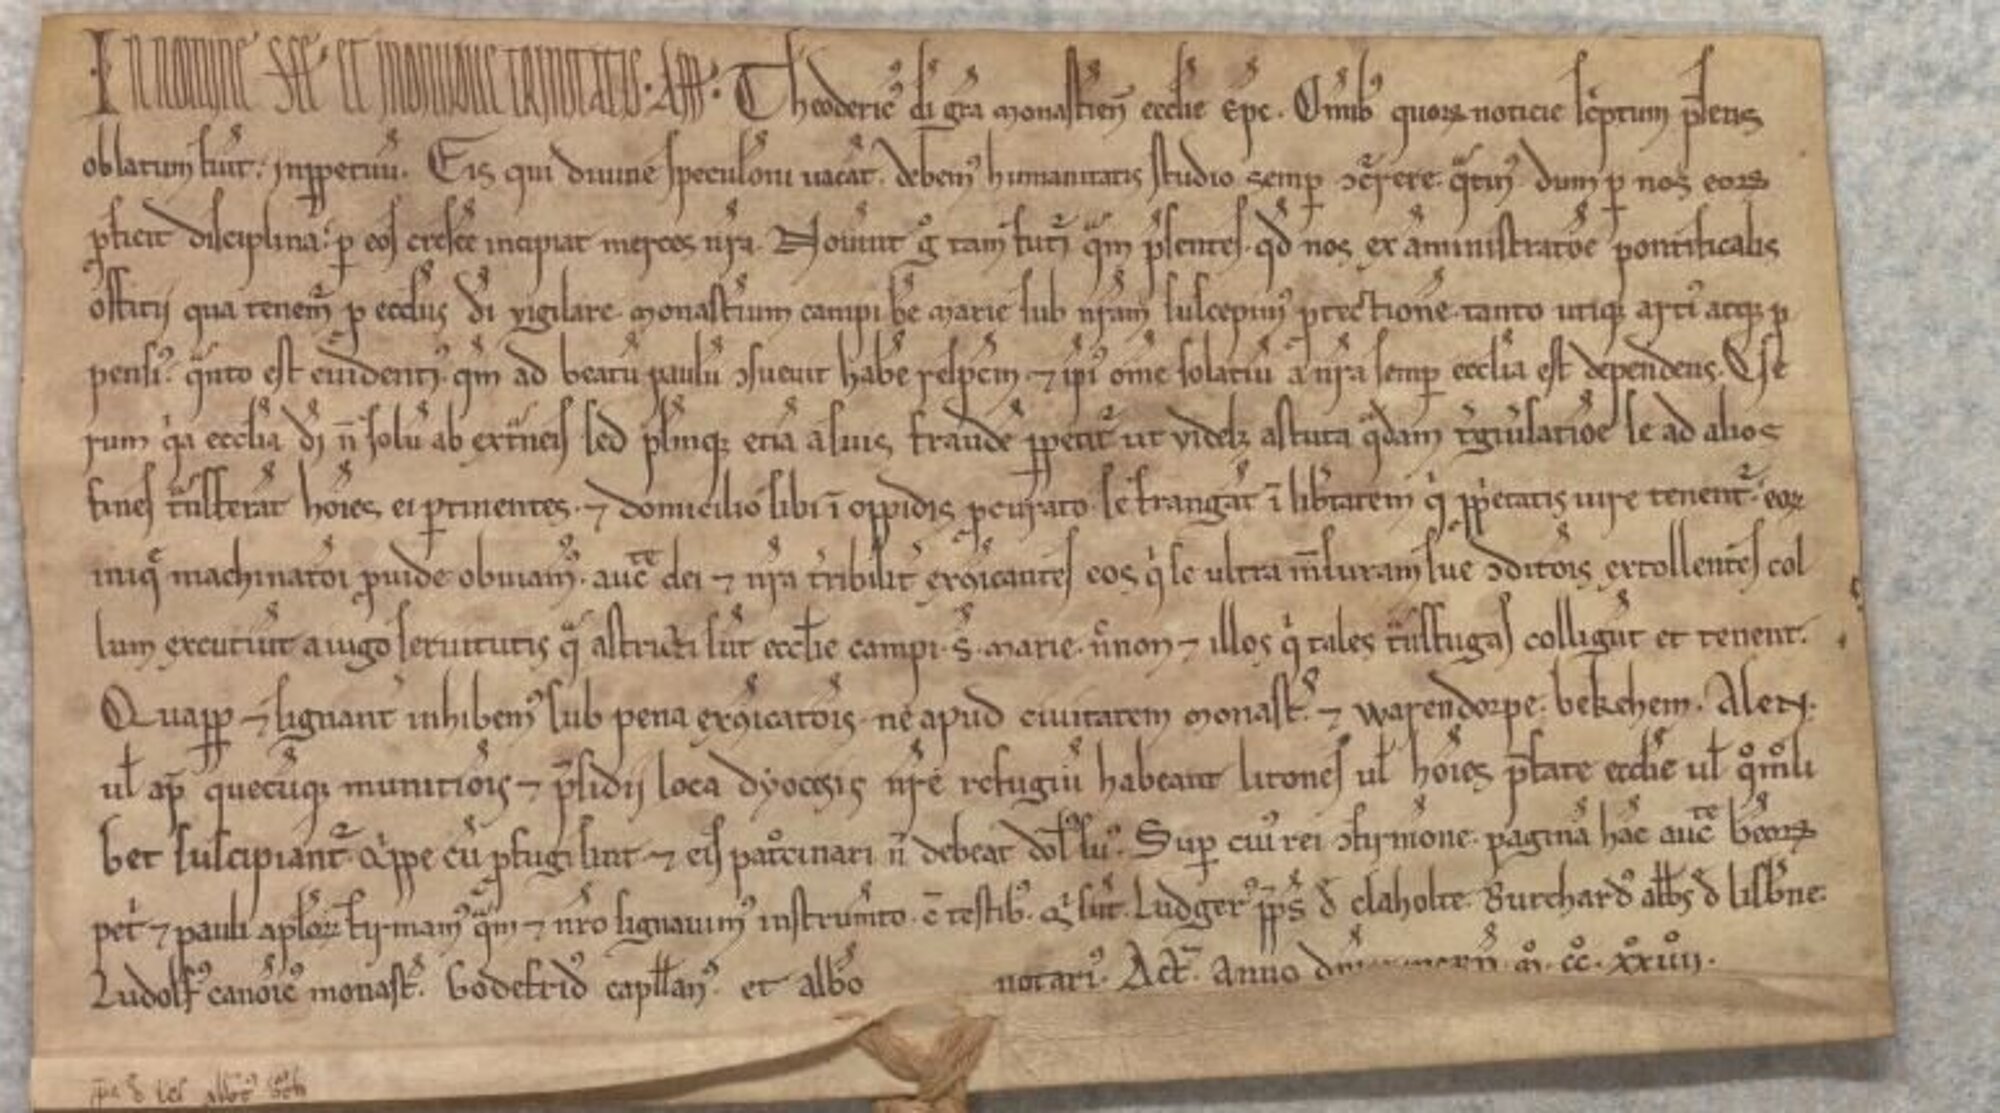 In nomine sce et individue trinitatis. Am. Theoderic' di gra monastien ecclie epc. Omib' quoꝝ noticie scriptum psens
oblatum fuit. inppetuu. Eis qui divine speculoni vacat. debem' humanitatis studio semp ꝯcrere. qtin' dum p nos eoꝝ
pficit disciplina. p eos crescere incipiat merces nra. Noviut g tam futi qm psentes. qd nos ex aministratoe pontificalis
officij qua tenem p ecclijs di vigilare. monastium campi be marie sub nram suscepim' ptectione. tanto utiq; arti' atq; p
pensi'. qnto est evidenti' qm ad beatu paulu ꝯsuevit habe respcm. ⁊ ipi' ome solatiu a nra semp ecclia est dependens. Cete
rum qa ecclia di n solu ab extneis sed plimq; etia a suis fraude ppetit ut videlz astuta qdam tgiusatioe se ad alios
fines tnsferat hoies ei ptinentes. ⁊ domicilio sibi i oppidis pcurato. se frangat i libtatem qi ppetatis iure tenent. eoꝝ
iniq machinatoi pvide obviam'. aucte dei ⁊ nra tribilit exɔicantes eos qi se ultra msuram sue ꝯditois extollentes col
lum excutiut a iugo servitutis q astricti sut ecclie campi. s. marie. nnon ⁊ illos qi tales tnsfugas colligut et tenent.
Quapp ⁊ signant inhibem' sub pena exɔicatois. ne apud civitatem monast. ⁊ warendorpe. bekehem. Alen.
ul ap quecuq; munitiois ⁊ psidij loca dyocesis nre refugiu habeant litones ul hoies pfate ecclie ul qmli
bet suscipiant. Qippe cu pfugi sint ⁊ eis patcinari n debeat dol' su'. Sup cui' rei ꝯfirmone. pagina hac aucte beoꝝ
pet ⁊ pauli aploꝝ firmam' qm ⁊ nro signavim' instrumto. c testib'. Qi sut. Ludger' pps d claholte. Burchard' abbs d lisbne.
Ludolf' canoic' monast. Godefrid' capllan'. et albo notari'. Act. anno dni m. cc. xxiiii.